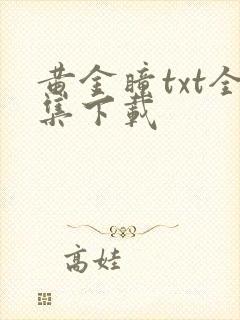 黄金瞳txt全
集下载
高娃